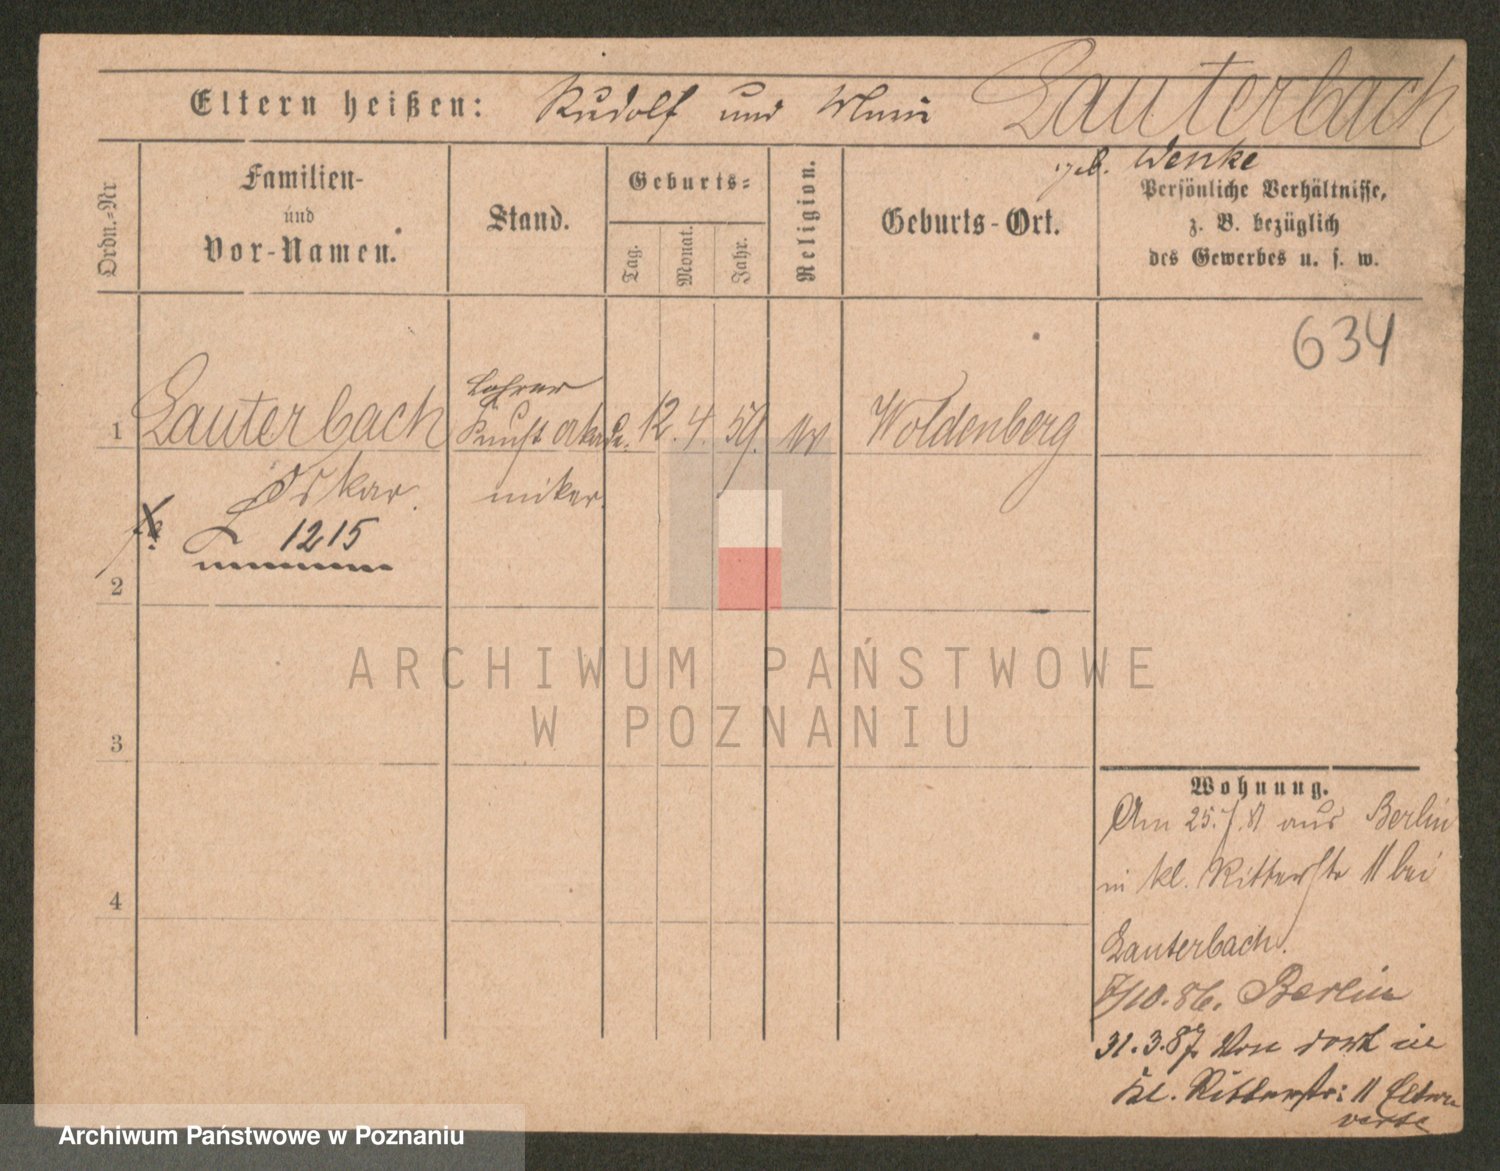 Lauterbach
Eltern heißen: Rudolf und
geb. Wenke
Ordn.=Nr
Familien-
und
Vor-Namen.
Stand.
Geburts=
Tag.
Monat.
Jahr.
Religion.
Geburts-Ort.
Persönliche Verhältnisse,
z. B. bezüglich
des Gewerbes u. s. w.
634
Lehrer
1 Lauterbach Kunst akade- 12. 4. 59. Woldenberg
Oskar. miker.
L 1215
2
ARCHIWUM PAŃSTWOWE
W POZNANIU
3
4
Wohnung.
Am 25. aus Berlin
in kl. Ritterstr 11 bei
Lauterbach.
/10.86. Berlin
31.3.87. Von dort in
Kl. Ritterstr: 11 Eltern
verte
Archiwum Państwowe w Poznaniu